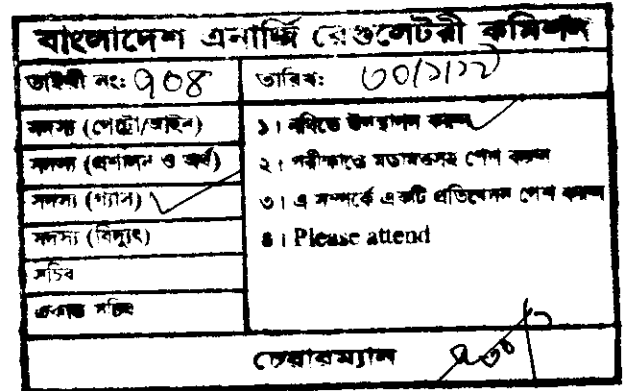 বাংলাদেশ এনার্জি রেগুলেটরী কমিশন
ডাইরী নং: ৭০৪
তারিখ: ৩০/১/১২
সদস্য (পেট্রো/আইন)
সদস্য (প্রশাসন ও অর্থ)
সদস্য (গ্যাস)
সদস্য (বিদ্যুৎ)
সচিব
একান্ত সচিব
১। নথিতে উপস্থাপন করুন
২। পরীক্ষান্তে মতামতসহ পেশ করুন
৩। এ সম্পর্কে একটি প্রতিবেদন পেশ করুন
৪। Please attend
চেয়ারম্যান